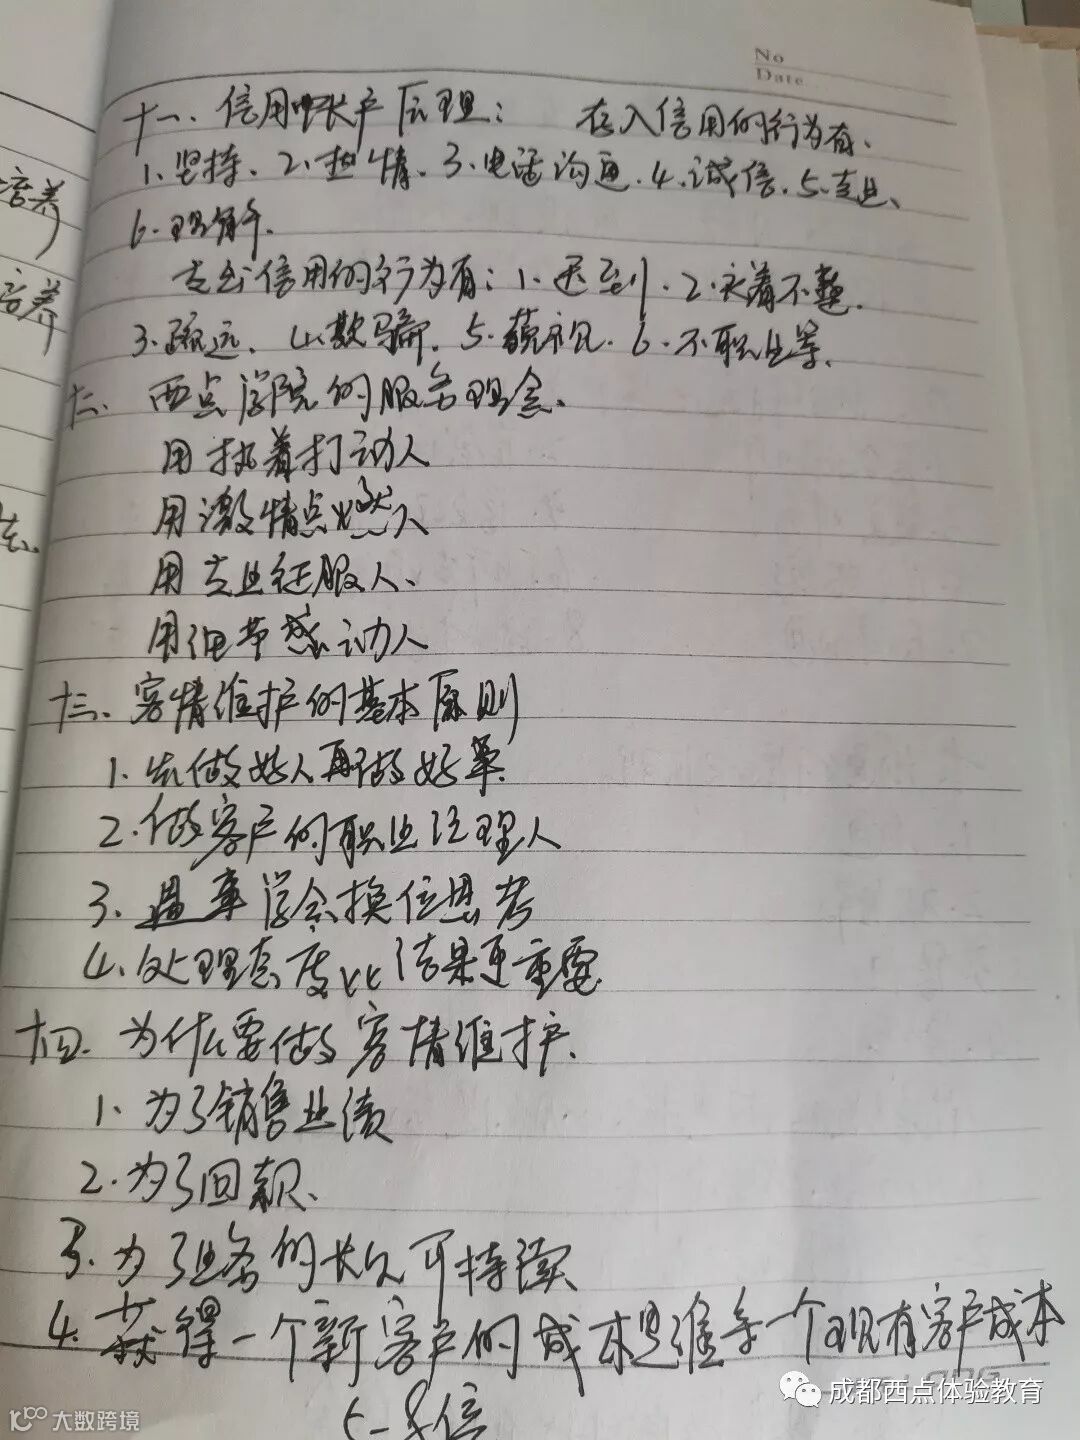 No
Date
培养
培养
十一、信用帐户原理： 存入信用的行为有、
1.坚持、2.热情、3.电话沟通、4.诚信、5.专业、
6.理解.
支出信用的行为有：1.迟到、2.衣着不整.
3.疏远、4.欺骗、5.藐视、6.不职业等.
十二、西点学院的服务理念、
用执着打动人
用激情点燃人
用专业征服人、
用细节感动人
十三、客情维护的基本原则
1.先做好人再做好事
2.做客户的职业经理人
3.遇事学会换位思考
4.处理态度比结果更重要
十四、为什么要做客情维护、
1.为了销售业绩
2.为了回款、
3.为了业务的长久可持续
4.获得一个新客户的成本是维系一个现有客户成本
5-8倍
成都西点体验教育
大数跨境